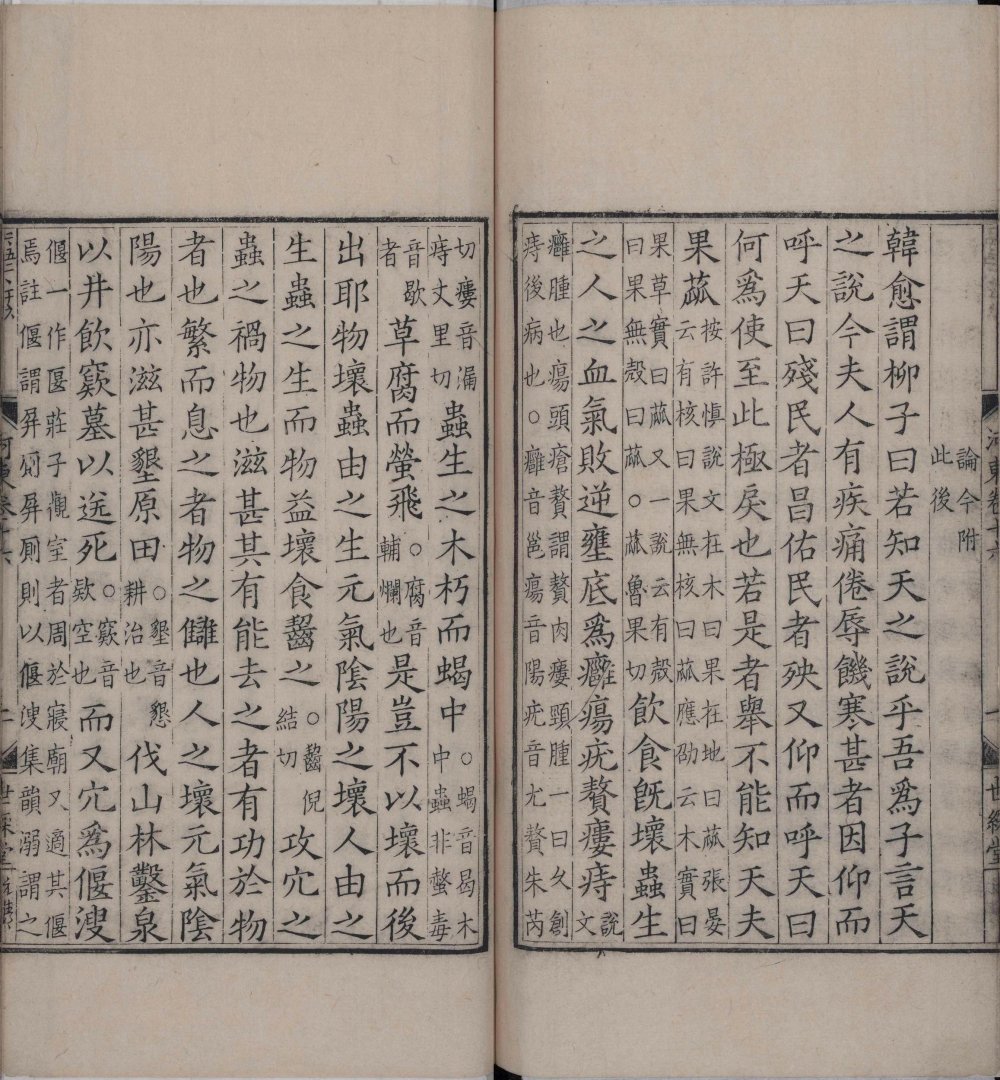 河東卷十六 一 世綵堂
論今附此後
韓愈謂柳子曰若知天之說乎吾爲子言天
之說今夫人有疾痛倦辱饑寒甚者因仰而
呼天曰殘民者昌佑民者殃又仰而呼天曰
何爲使至此極戾也若是者舉不能知天夫
果蓏按許慎說文在木曰果在地曰蓏張晏云有核曰果無核曰蓏應劭云木實曰
果草實曰蓏又一說云有殼曰果無殼曰蓏。蓏魯果切飲食既壞蟲生
之人之血氣敗逆壅底爲癰瘍疣贅瘻痔說文
癰腫也瘍頭瘡贅謂贅肉瘻頸腫一曰久創痔後病也。癰音邕瘍音陽疣音尤贅朱芮
切瘻音漏痔丈里切蟲生之木朽而蝎中。蝎音曷木中蟲非螫毒
音歇者草腐而螢飛。腐音輔爛也是豈不以壞而後
出耶物壞蟲由之生元氣陰陽之壞人由之
生蟲之生而物益壞食齧之。齧倪結切攻穴之
蟲之禍物也滋甚其有能去之者有功於物
者也繁而息之者物之讎也人之壞元氣陰
陽也亦滋甚墾原田。墾音懇耕治也伐山林鑿泉
以井飲窾墓以送死。窾音款空也而又穴爲偃溲
偃一作匽莊子觀室者周於寢廟又適其偃焉註偃謂屏廁屏廁則以偃溲集韻溺謂之
河東卷十六 二 世綵堂